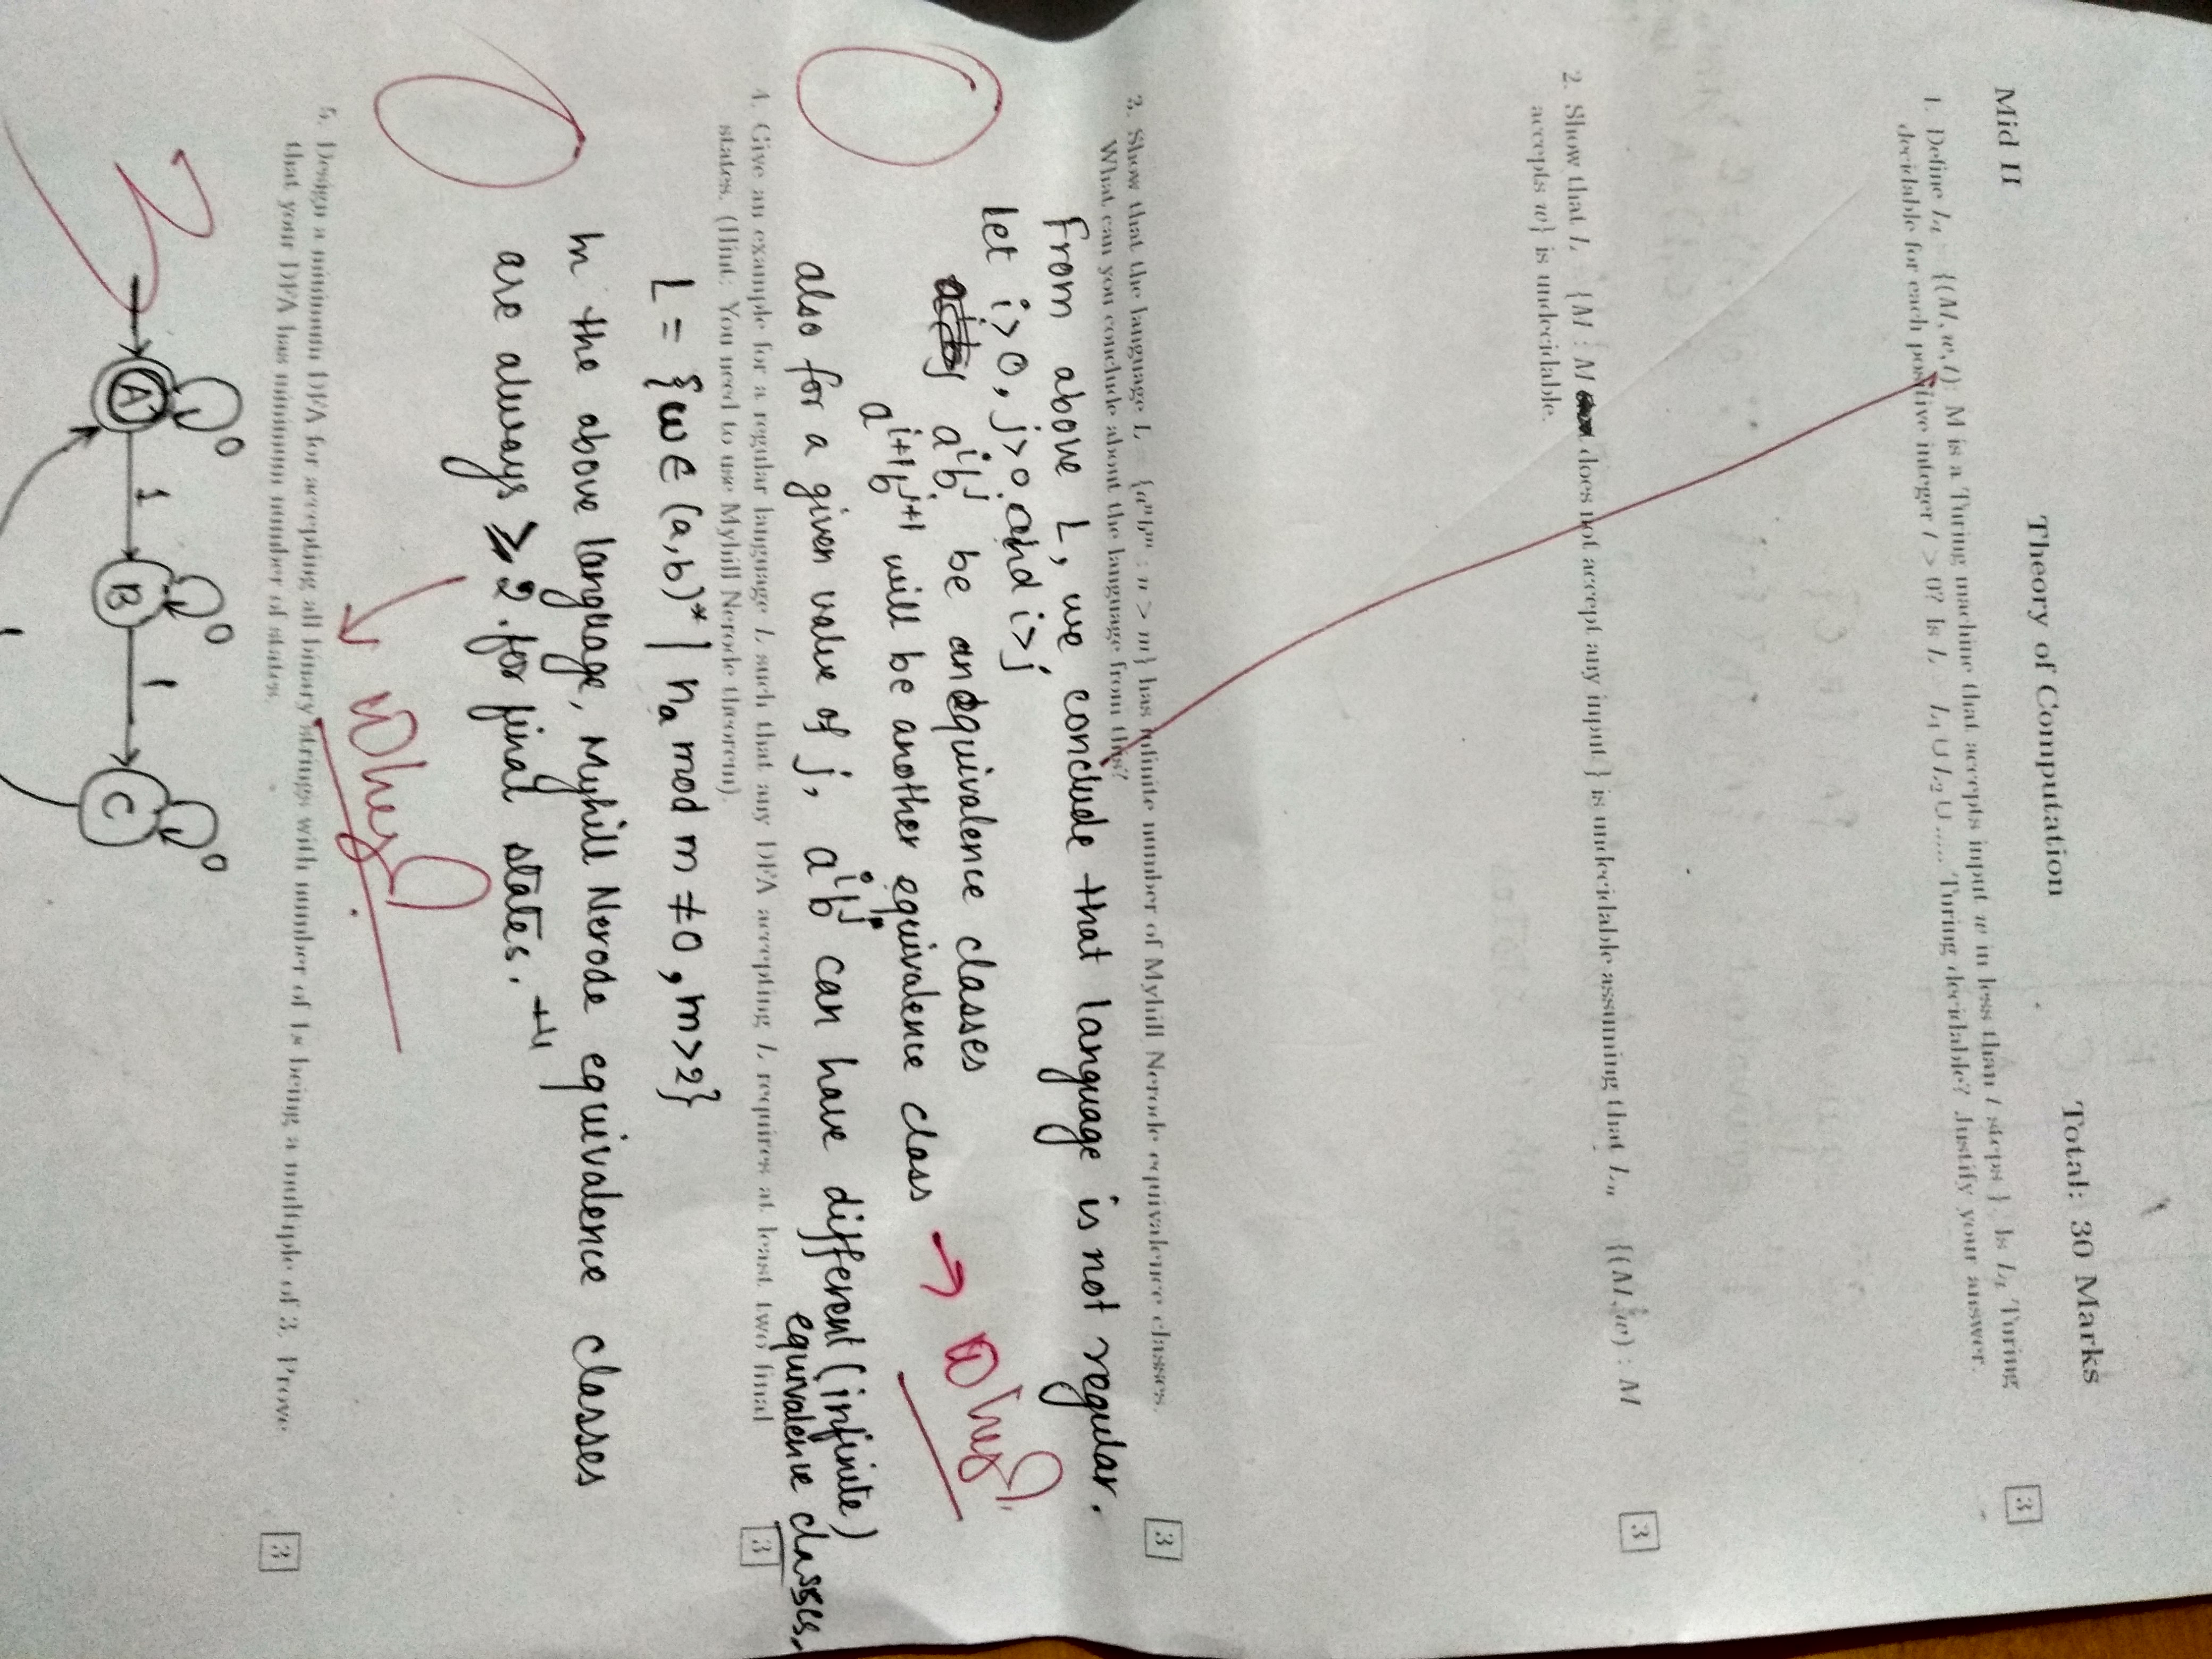 Theory of Computation
Mid II
Total: 30 Marks
1. Define Lt = {(M, w, t): M is a Turing machine that accepts input w in less than t steps }. Is Lt Turing
decidable for each positive integer t > 0? Is L = L1 ∪ L2 ∪ ..... Turing decidable? Justify your answer.
3
2. Show that L = {M : M does not accept any input } is undecidable assuming that Lu = {(M, w) : M
accepts w} is undecidable.
3
3. Show that the language L = {aⁿbᵐ : n > m} has infinite number of Myhill Nerode equivalence classes.
What can you conclude about the language from this?
3
From above L, we conclude that language is not regular.
Let i>0, j>0 and i>j
aⁱbʲ be an equivalence classes
aⁱ⁺¹bʲ⁺¹ will be another equivalence class → Why?
also for a given value of j, aⁱbʲ can have different (infinite)
equivalence classes.
4. Give an example for a regular language L such that any DFA accepting L requires at least two final
states. (Hint: You need to use Myhill Nerode theorem).
3
L = {w ∈ (a,b)* | nₐ mod m ≠ 0, m>2}
In the above language, Myhill Nerode equivalence classes
are always ≥ 2 for final states.
→ Why?
5. Design a minimum DFA for accepting all binary strings with number of 1s being a multiple of 3. Prove
that your DFA has minimum number of states.
3
3
0 0 0
A 1 B 1 C
1